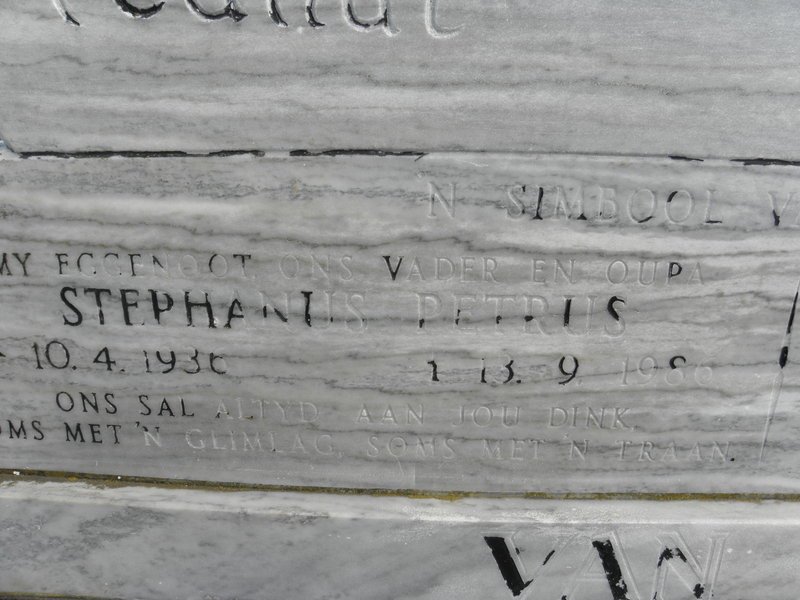 N SIMBOOL
MY EGGENOOT ONS VADER EN OUPA
STEPHANUS PETRUS
10.4.1936 † 13.9.1986
ONS SAL ALTYD AAN JOU DINK,
SOMS MET 'N GLIMLAG, SOMS MET 'N TRAAN.
VAN